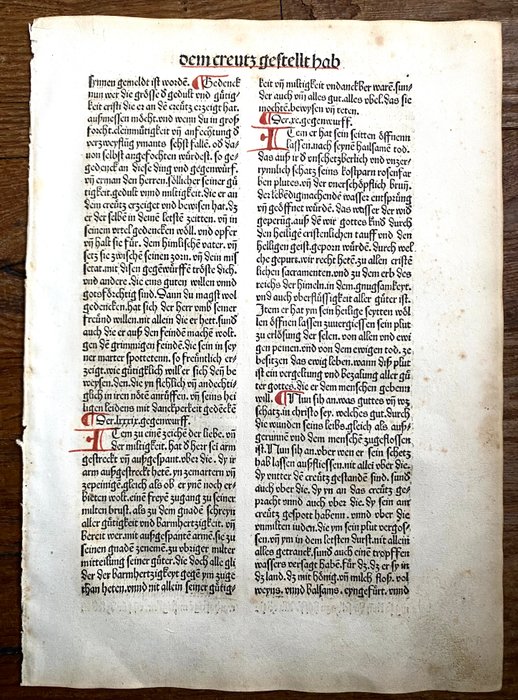 dem creutz gestellt hab
ynnen gemeldt ist wordē. Gedenck
nun wer die grösse d̕ gedult vnd gütig/
keit cristi die er an dē creütz erzeigt hat.
außmessen möcht. vnd wenn du in groß
forcht. cleinmütigkeit vn̄ anfechtung d̕
verzweyflūg ymants sehst falle. od̕ da/
uon selbst angefochten würdost. so ge/
gedenck an dise ding vnd gegenwürf.
vn̄ erman den herren. söllicher seiner gü
tigkeit. gedult vnnd miltigkeit. die er an
den creutz erzeiget vnd bewisen hat. dz
er der selbē in deinē letstē zeitten. vn̄ in
seinem vrtel gedencken wöll. vnd opfer
vn̄ halt sie für. dem himlischē vater. vn̄
setz sie zwischē seinen zorn. vn̄ dein mis
setat. mit disen gegēwürffē tröste dich.
vnd andre. die eins guten willen vnnd
gotsförchtig sind. Dann du magst wol
gedencken. hat sich der herr vmb seiner
freund willen. mit allein die er hett. sund̕
auch die er auß den feindē machē wolt.
gen dē grimmigen feindē. die sein in sey
ner marter spottetenn. so freuntlich er/
zeigt. wie gütigklich will er sich den be
weysen. den die yn fleßlich vn̄ andechti/
glich in iren nötē anrüffen. vn̄ seins hei
ligen leidens mit danckperkeit gedēckē
Der. lxxxix. gegenwurff.
Item zu eine zeichē der liebe. vn̄
der miltigkeit. hat d̕ herr sei arm
gestreckt vn̄ außgespant. ober die. dy ir
arm außgestreckt hetē. yn zemartern vn̄
zepeinigē. gleich als ob er ynē noch er/
bieten wolt. eine freyē zugang zu seiner
milten brust. als zu dem gnadē schreyn
aller gütigkeit vnd barmhertzigkeit. vn̄
bereit wer. mit außgespantē armē. sie zu
seinen gnadē zenemē. zu vbriger milter
mitteilung seiner güter. die doch alle gli
der der barmhertzigkeyt gegē ym zuge
than heten. vnnd nit allein seiner gütig/
keit vn̄ miltigkeit vndanckber warē. sun/
der auch vm̄ alles gut. alles vbel. das sie
mochtē. bewysen vn̄ teten.
Der. xc. gegenwurff.
Item er hat sein seitten öffnenn
lassen. nach seynē hailsamē tod.
das auß ir d̕ vnschetzberlich vnd vnzer/
rymlich schatz seins kostparn rosenfar
ben plutes. vn̄ der vnerschöpflich brun̄.
der lebēdigmachendē wasser entsprūg
vn̄ geöffnet würdē. das wasser der wid̕
geperūg. auß dē wir gottes kind̕ durch
den heilige cristenlichen tauff vnd den
heiligen geist. geporn würdē. durch wel
che gepurt. wir recht hetē. zu allen cristē
lichen sacramenten. vnd zu dem erb des
reichs der himeln. in dem. gnugsamkeyt.
vnd auch oberflüssigkeit aller güter ist.
Item er hat ym sein heilige seytten wöl
len öffnen lassen zuuergiessen sein plut
zu erlösung der selen. von allen vnd ewi
gen peinen. vnd von dem ewigen tod. ze
besitzen das ewig leben. wann diß plut
ist ein vergeltung vnd bezalung aller gü
ter gottes. die er dem menschen gebenn
will. Nun sih an. was guttes vn̄ wz
schatz. in christo sey. welches gut. durch
die wunden seins leibs. gleich als auß/
gerunnē vnd dem menschē zugeflossen
ist. Nun sih an. ober wen er sein schetz
hab lassen außfliessen. nit allei ober die.
dy vntter dē creutz gestandē sind. sund̕
auch ober die. dy yn an das creütz ge/
pracht vnnd auch ober die. dy sein am
creutz gespott habenn. vnnd ober die
vnmilten iuden. die ym sein plut vergos/
sen. vn̄ ym in dem letsten durst. nit allein
alles getranck. sund̕ auch eine tropffen
wassers versagt habē. für dz. dz er sy in
dz land. dz mit hönig. vn̄ milch floß. vol
weyns. vnnd balsams. eyngefürt. vnnd